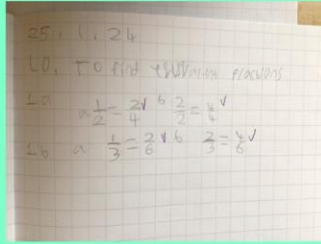 25.1.24
LO. To find equivalent fractions
1a a 1/2 = 2/4 ✓ b 2/2 = 4/4 ✓
1b a 1/3 = 2/6 ✓ b 2/3 = 4/6 ✓